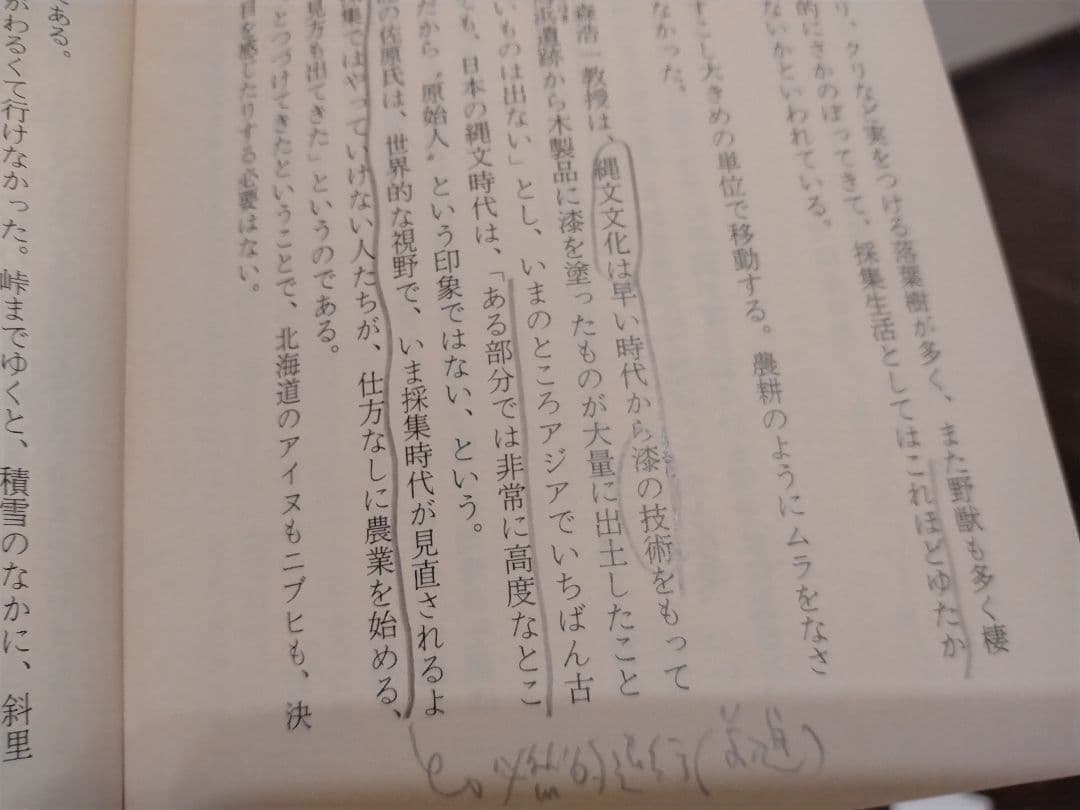 り、クリなど実をつける落葉樹が多く、また野獣も多く棲
的にさかのぼってきて、採集生活としてはこれほどゆたか
ないかといわれている。
すこし大きめの単位で移動する。農耕のようにムラをなさ
なかった。
森浩一教授は、縄文文化は早い時代から漆の技術をもって
浜遺跡から木製品に漆を塗ったものが大量に出土したこと
いものは出ない」とし、いまのところアジアでいちばん古
ても、日本の縄文時代は、「ある部分では非常に高度なとこ
だから〝原始人〟という印象ではない、という。
の佐原氏は、世界的な視野で、いま採集時代が見直されるよ
集ではやっていけない人たちが、仕方なしに農業を始める、
見方も出てきた」というのである。
とつづけてきたということで、北海道のアイヌもニブヒも、決
目を感じたりする必要はない。
ある。
がわるくて行けなかった。峠までゆくと、積雪のなかに、斜里